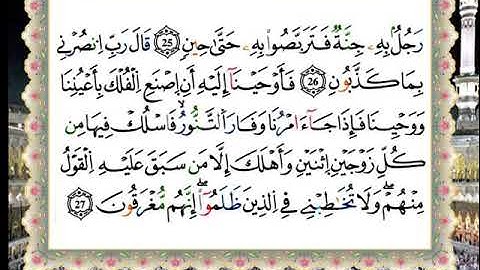 رَجُلُۢ بِهِۦ جِنَّةٞ فَتَرَبَّصُواْ بِهِۦ حَتَّىٰ حِينٖ 25 قَالَ رَبِّ اِ۟نصُرْنِے
بِمَا كَذَّبُونِ 26 فَأَوْحَيْنَآ إِلَيْهِ أَنِ اِ۪صْنَعِ اِ۬لْفُلْكَ بِأَعْيُنِنَا
وَوَحْيِنَا فَإِذَا جَآءَ امْرُنَا وَفَارَ اَ۬لتَّنُّورُ فَاسْلُكْ فِيهَا مِن
كُلِّ زَوْجَيْنِ اِ۪ثْنَيْنِ وَأَهْلَكَ إِلَّا مَن سَبَقَ عَلَيْهِ اِ۬لْقَوْلُ
مِنْهُمْۖ وَلَا تُخَٰطِبْنِے فِے اِ۬لذِينَ ظَلَمُوٓاْۖ إِنَّهُم مُّغْرَقُونَ 27